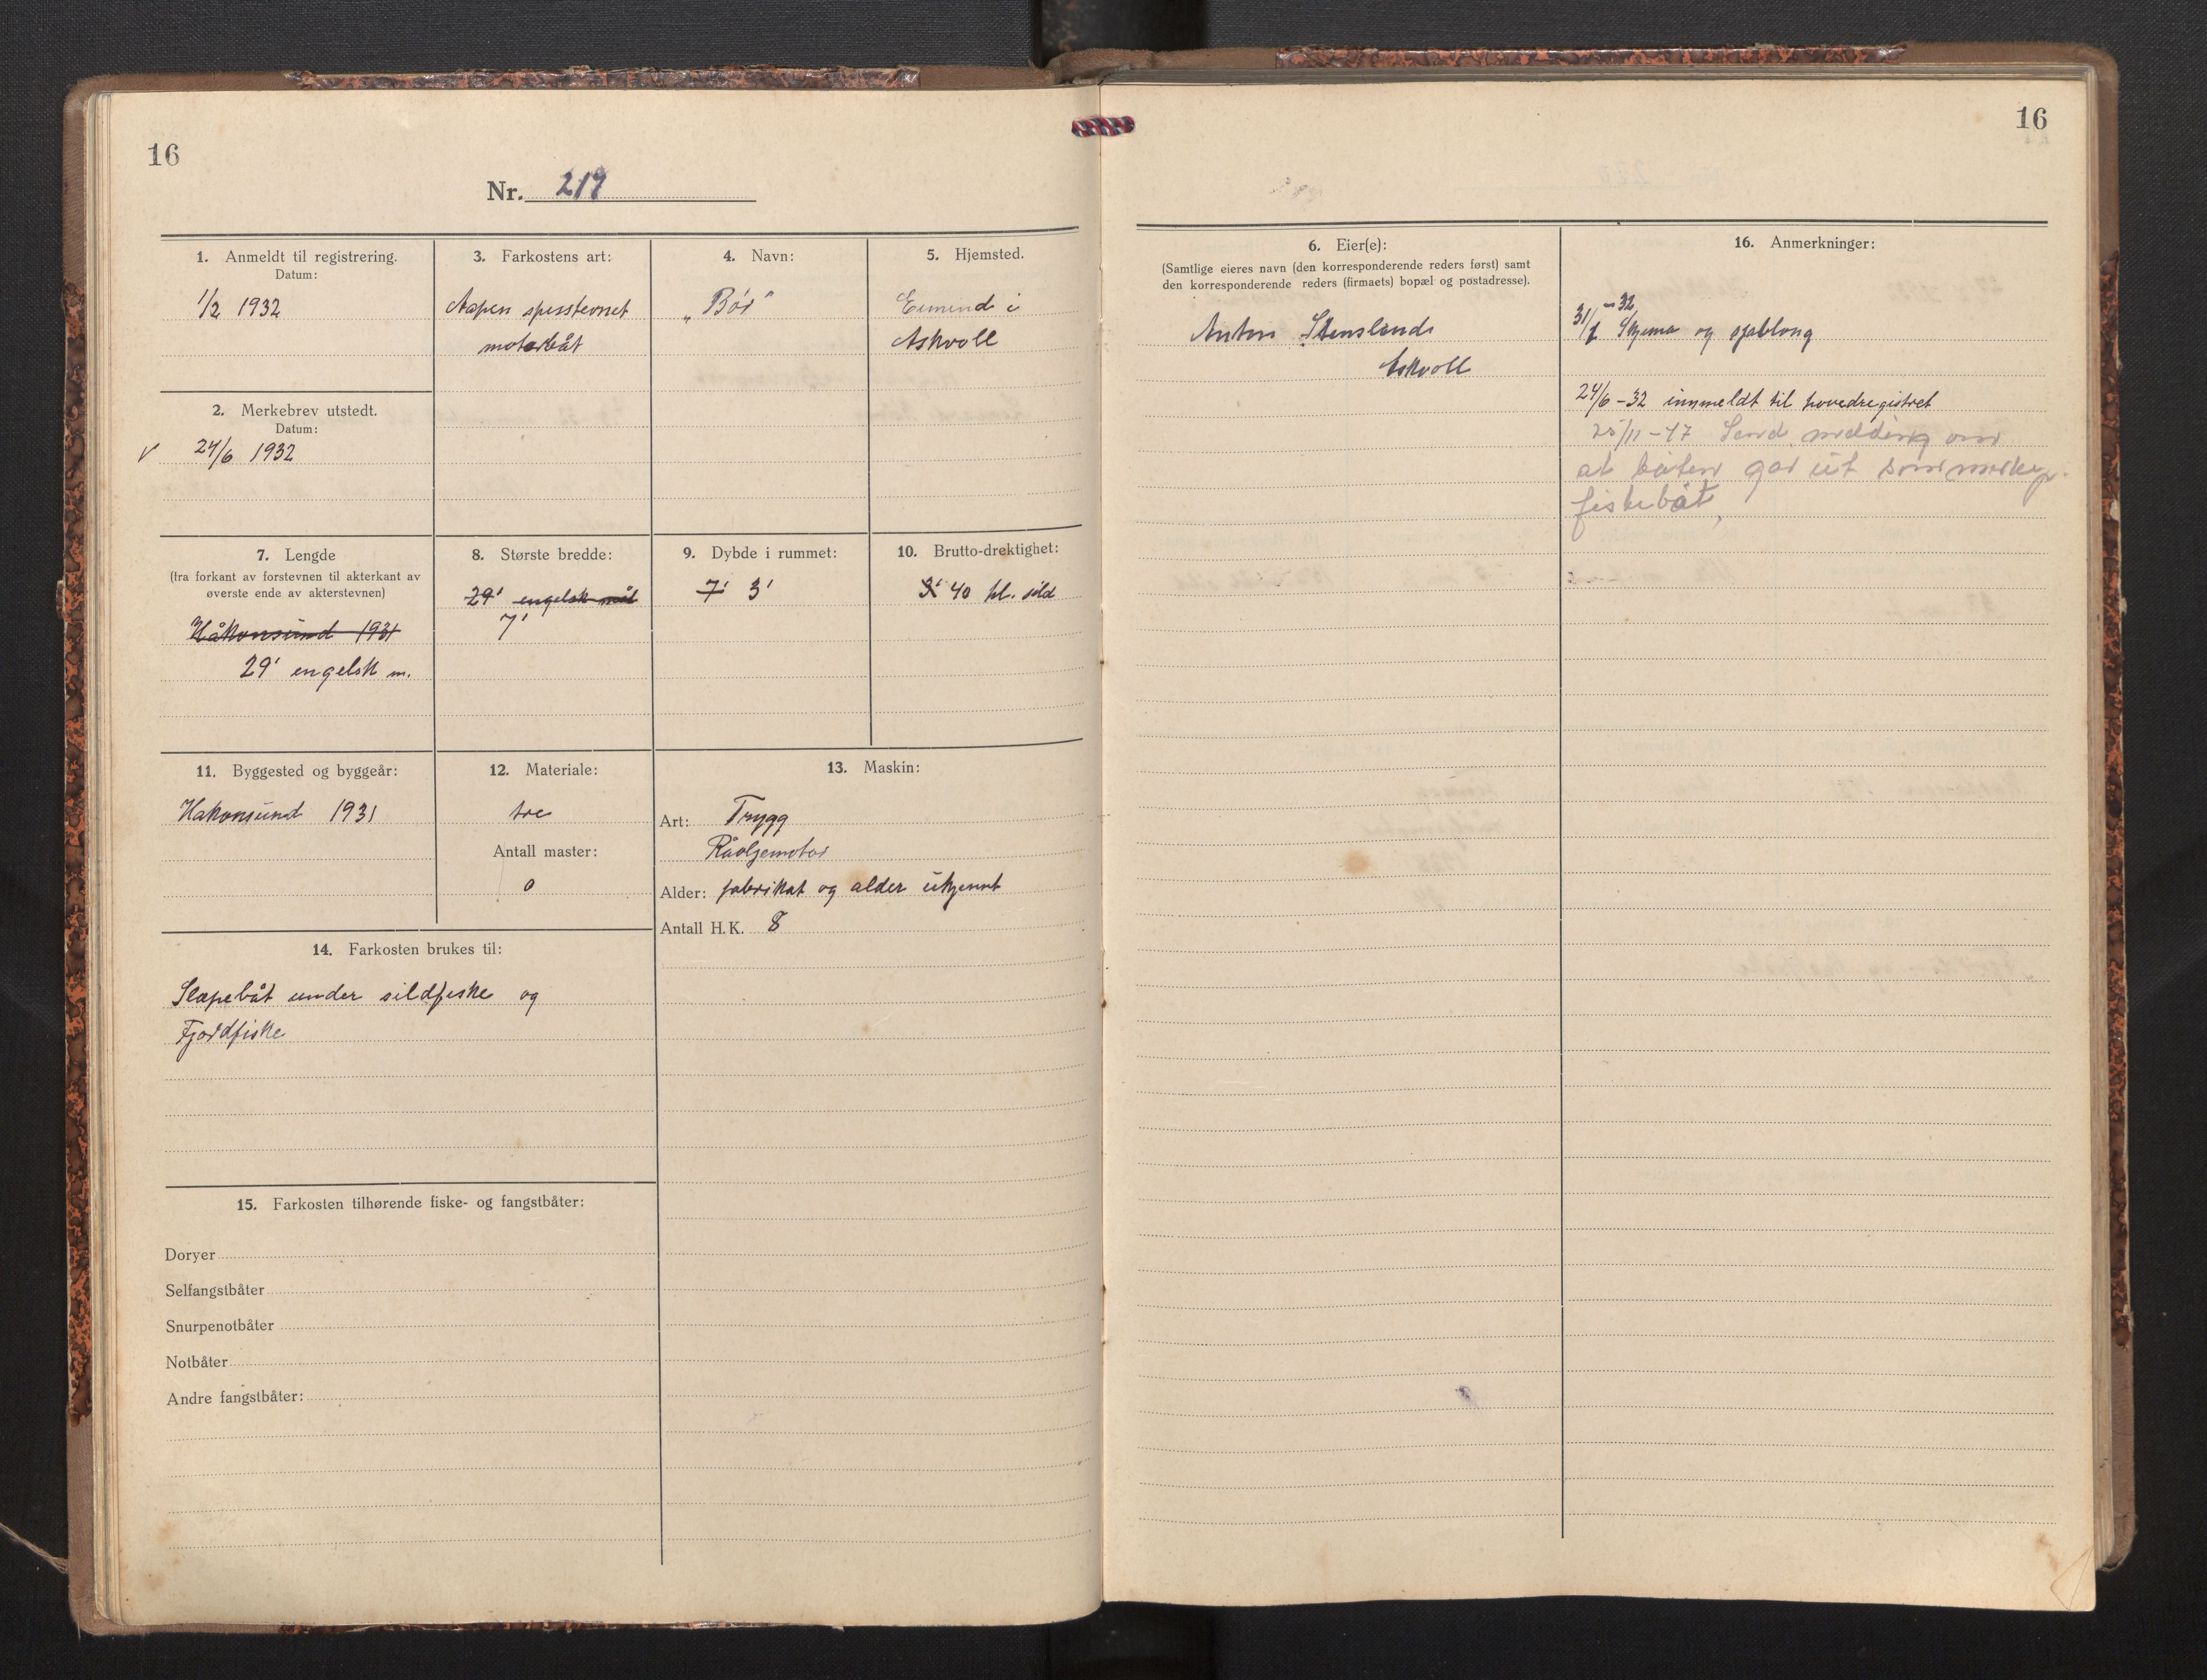 16
Nr. 219
1. Anmeldt til registrering.
Datum:
1/2 1932
2. Merkebrev utstedt.
Datum:
✓ 24/6 1932
3. Farkostens art:
Aapen spisstevnet
motorbåt
4. Navn:
„Bör"
5. Hjemsted.
i
Askvoll
7. Lengde
(fra forkant av forstevnen til akterkant av
øverste ende av akterstevnen)
Håkonsund 1931
29' engelsk m.
8. Største bredde:
29' engelsk mål
7'
9. Dybde i rummet:
7' 3'
10. Brutto-drektighet:
3' 40 hl. sild
11. Byggested og byggeår:
Hakonsund 1931
12. Materiale:
tre
Antall master:
0
13. Maskin:
Art: Trygg
Råoljemotor
Alder: fabrikat og alder ukjennt
Antall H.K. 8
14. Farkosten brukes til:
Slæpebåt under sildfiske og
Fjordfiske
15. Farkosten tilhørende fiske- og fangstbåter:
Doryer
Selfangstbåter
Snurpenotbåter
Notbåter
Andre fangstbåter:
16
6. Eier(e):
(Samtlige eieres navn (den korresponderende reders først) samt
den korresponderende reders (firmaets) bopæl og postadresse).
Anton Stensland
Askvoll
16. Anmerkninger:
31/1 -32 Skjema og sjablong
24/6 -32 innmeldt til hovedregistret
25/11 -47 Send melding om
at båten gar ut som
fiskebåt,